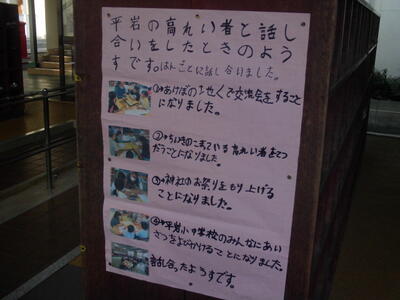 平岩の高れい者と話し
合いをしたときのよう
すです。はんごとに話し合いました。
①→あけぼのさせんで交流会をすること
になりました。
②→ちいきのこまっている高れい者をてつ
だうことになりました。
③→神社のお祭りをもり上げる
ことになりました。
④→平岩小中学校のみんなにあい
さつをよびかけることになりました。
話し合ったようすです。